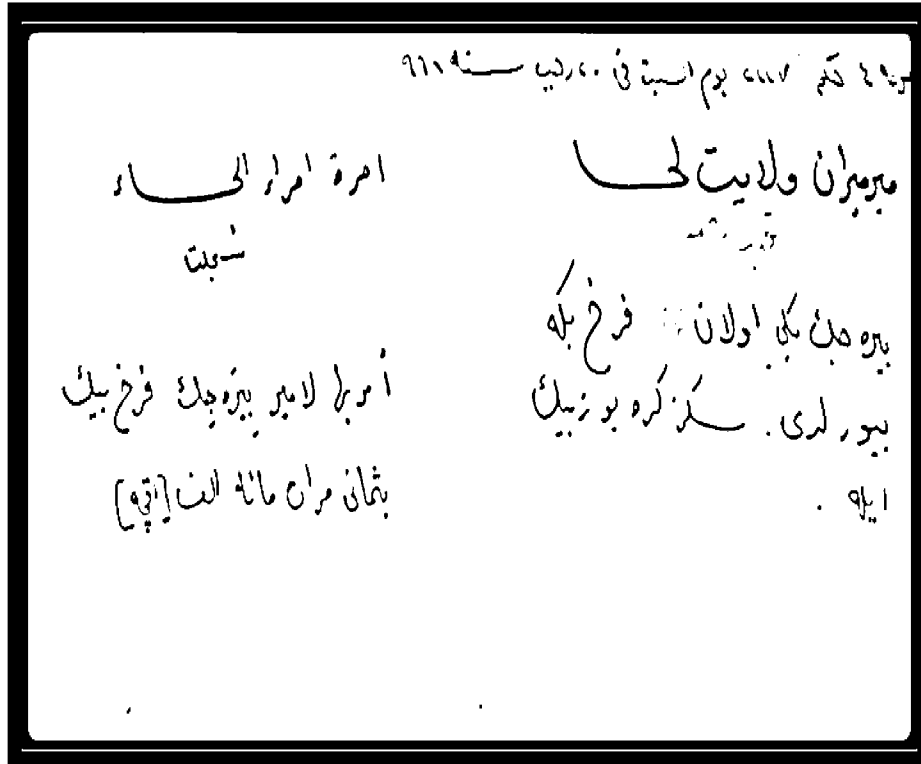 يوم السبت في ٢٠ رجب سنة ٩٦١
ميرميران ولايت لحسا
بيره جك بكى اولان فرخ بكه
بيورلدى . سكز كره يوز بيك
ايله .
امرة امراء الحساء
سجلت
أمر بها لامير بيره جك فرخ بيك
بثمانى مرات مائة الف [اقچه]